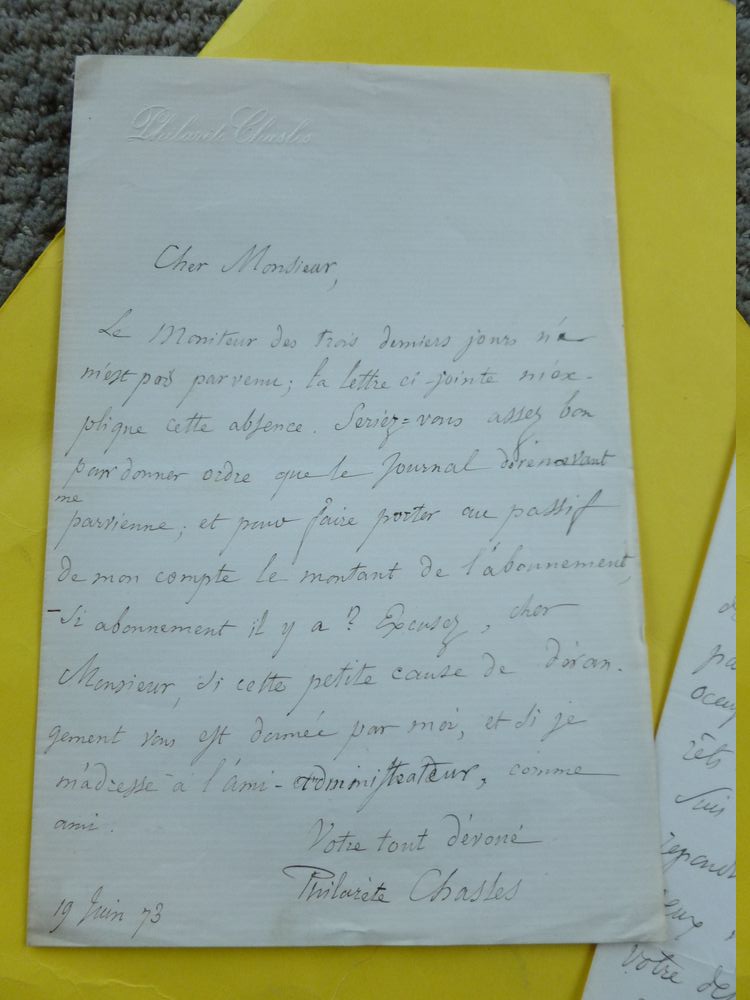 Philarète Chasles
Cher Monsieur,
Le Moniteur des trois derniers jours
n'est pas parvenu; la lettre ci-jointe m'ex-
plique cette absence. Seriez-vous assez bon
pour donner ordre que le Journal dorénavant
me
parvienne; et pour faire porter au passif
de mon compte le montant de l'abonnement,
- Si abonnement il y a? Excusez, cher
Monsieur, si cette petite cause de déran-
gement vous est donnée par moi, et si je
m'adresse à l'ami-administrateur, comme
ami.
Votre tout dévoué
Philarète Chasles
19 Juin 73
pa
occup
rêts
Suis
Votre de